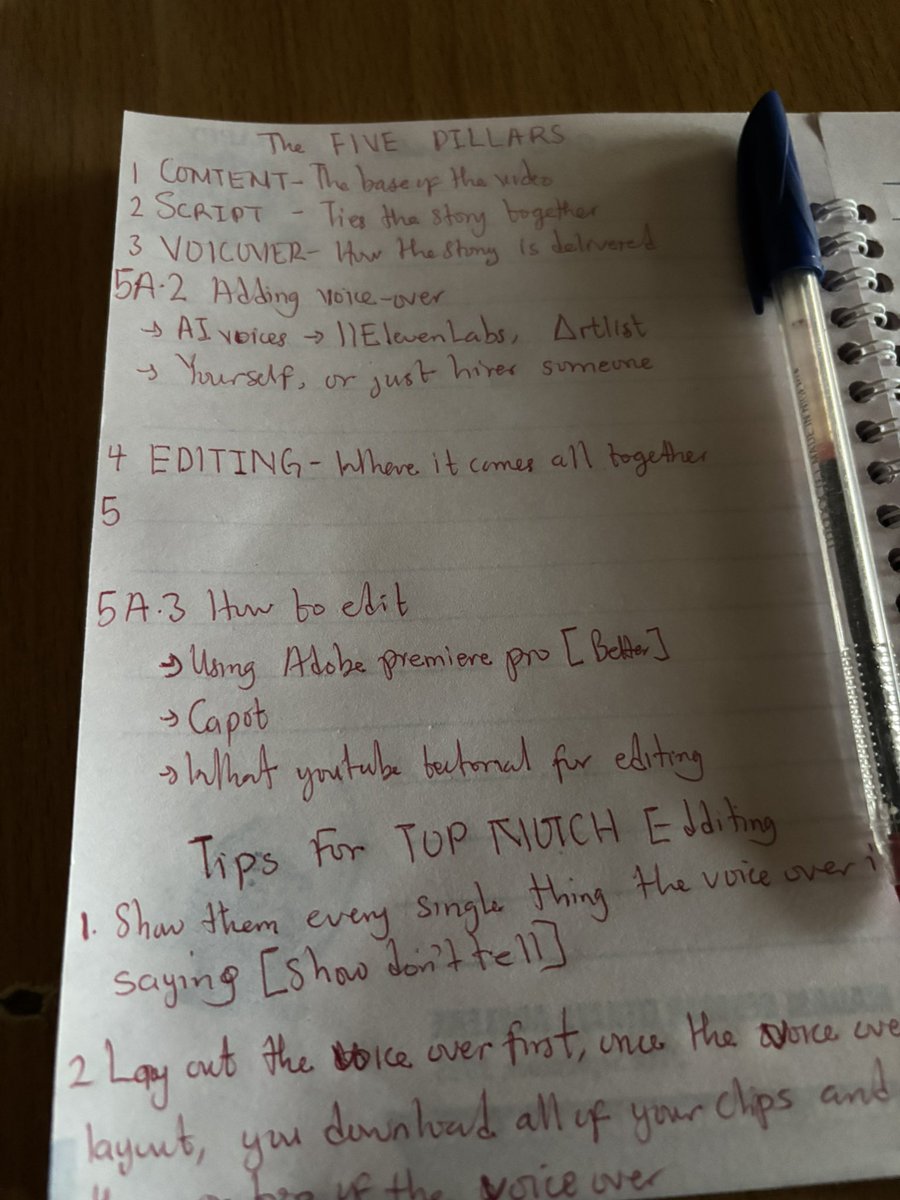 The FIVE PILLARS
1 CONTENT - The base of the video
2 SCRIPT - Ties the story together
3 VOICOVER - How the story is delivered
5A.2 Adding voice-over
→ AI voices → 11ElevenLabs, Artlist
→ Yourself, or just hirer someone
4 EDITING - Where it comes all together
5
5A.3 How to edit
→ Using Adobe premiere pro [Better]
→ Capct
→ What youtube tectorial for editing
Tips For TOP NOTCH Edditing
1. Show them every single thing the voice over i
saying [Show don't tell]
2 Lay out the voice over first, once the voice ove
layout, you download all of your clips and
of the voice over